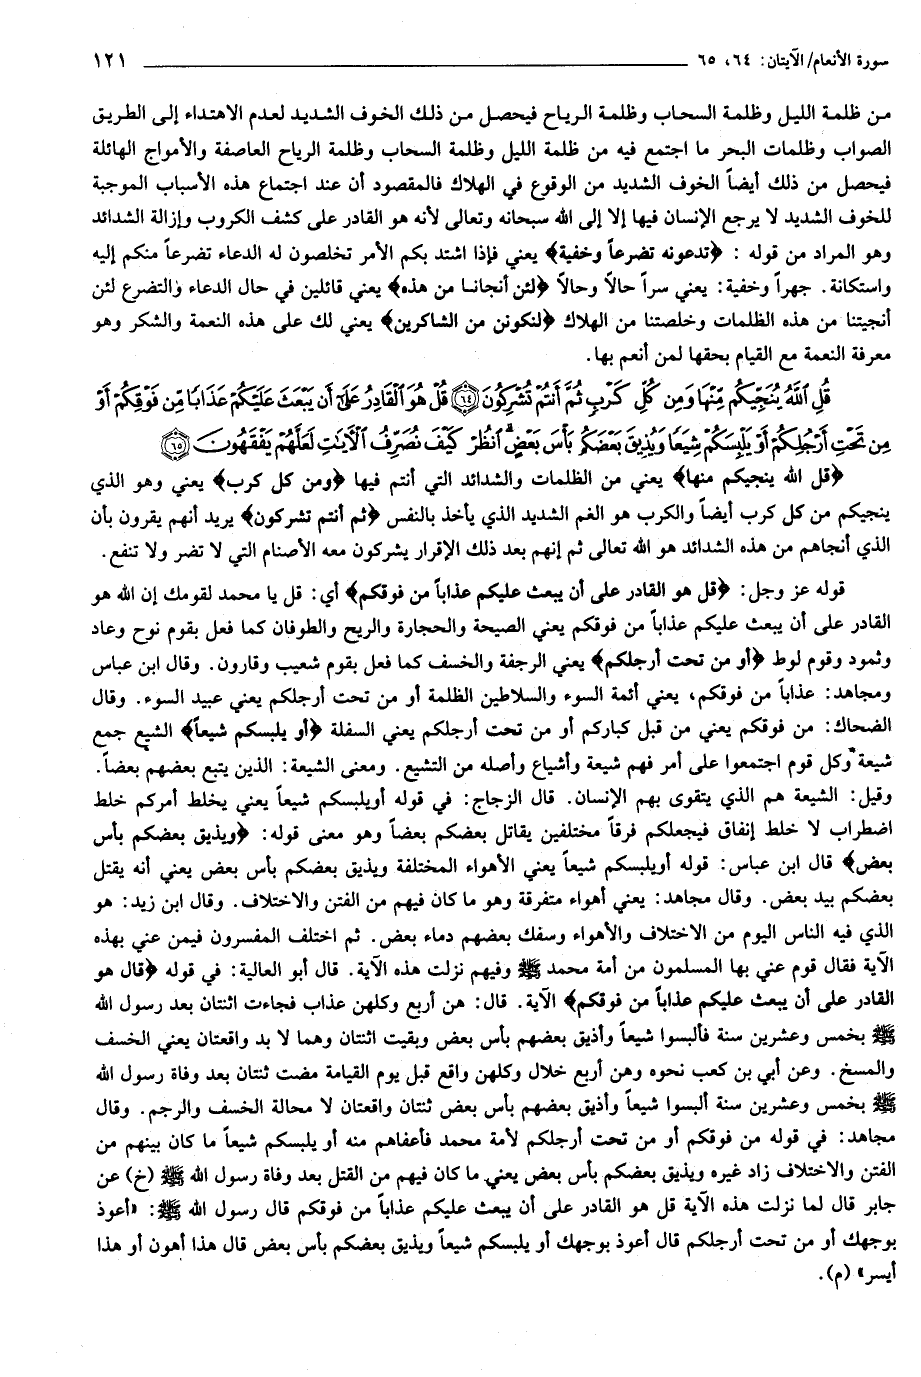 سورة الأنعام/ الآيتان: ٦٤، ٦٥ ١٢١
من ظلمة الليل وظلمة السحاب وظلمة الرياح فيحصل من ذلك الخوف الشديد لعدم الاهتداء إلى الطريق
الصواب وظلمات البحر ما اجتمع فيه من ظلمة الليل وظلمة السحاب وظلمة الرياح العاصفة والأمواج الهائلة
فيحصل من ذلك أيضاً الخوف الشديد من الوقوع في الهلاك فالمقصود أن عند اجتماع هذه الأسباب الموجبة
للخوف الشديد لا يرجع الإنسان فيها إلا إلى الله سبحانه وتعالى لأنه هو القادر على كشف الكروب وإزالة الشدائد
وهو المراد من قوله : ﴿تدعونه تضرعاً وخفية﴾ يعني فإذا اشتد بكم الأمر تخلصون له الدعاء تضرعاً منكم إليه
واستكانة. جهراً وخفية: يعني سراً حالاً وحالاً ﴿لئن أنجانا من هذه﴾ يعني قائلين في حال الدعاء والتضرع لئن
أنجيتنا من هذه الظلمات وخلصتنا من الهلاك ﴿لنكونن من الشاكرين﴾ يعني لك على هذه النعمة والشكر وهو
معرفة النعمة مع القيام بحقها لمن أنعم بها.
قُلِ ٱللَّهُ يُنَجِّيكُم مِّنْهَا وَمِن كُلِّ كَرْبٍ ثُمَّ أَنتُمْ تُشْرِكُونَ ٦٤ قُلْ هُوَ ٱلْقَادِرُ عَلَىٰٓ أَن يَبْعَثَ عَلَيْكُمْ عَذَابًا مِّن فَوْقِكُمْ أَوْ
مِن تَحْتِ أَرْجُلِكُمْ أَوْ يَلْبِسَكُمْ شِيَعًا وَيُذِيقَ بَعْضَكُم بَأْسَ بَعْضٍۗ ٱنظُرْ كَيْفَ نُصَرِّفُ ٱلْآيَـٰتِ لَعَلَّهُمْ يَفْقَهُونَ ٦٥
﴿قل الله ينجيكم منها﴾ يعني من الظلمات والشدائد التي أنتم فيها ﴿ومن كل كرب﴾ يعني وهو الذي
ينجيكم من كل كرب أيضاً والكرب هو الغم الشديد الذي يأخذ بالنفس ﴿ثم أنتم تشركون﴾ يريد أنهم يقرون بأن
الذي أنجاهم من هذه الشدائد هو الله تعالى ثم إنهم بعد ذلك الإقرار يشركون معه الأصنام التي لا تضر ولا تنفع.
قوله عز وجل: ﴿قل هو القادر على أن يبعث عليكم عذاباً من فوقكم﴾ أي: قل يا محمد لقومك إن الله هو
القادر على أن يبعث عليكم عذاباً من فوقكم يعني الصيحة والحجارة والريح والطوفان كما فعل بقوم نوح وعاد
وثمود وقوم لوط ﴿أو من تحت أرجلكم﴾ يعني الرجفة والخسف كما فعل بقوم شعيب وقارون. وقال ابن عباس
ومجاهد: عذاباً من فوقكم، يعني أئمة السوء والسلاطين الظلمة أو من تحت أرجلكم يعني عبيد السوء. وقال
الضحاك: من فوقكم يعني من قبل كباركم أو من تحت أرجلكم يعني السفلة ﴿أو يلبسكم شيعاً﴾ الشيع جمع
شيعة وكل قوم اجتمعوا على أمر فهم شيعة وأشياع وأصله من التشيع. ومعنى الشيعة: الذين يتبع بعضهم بعضاً.
وقيل: الشيعة هم الذي يتقوى بهم الإنسان. قال الزجاج: في قوله أويلبسكم شيعاً يعني يخلط أمركم خلط
اضطراب لا خلط إنفاق فيجعلكم فرقاً مختلفين يقاتل بعضكم بعضاً وهو معنى قوله: ﴿ويذيق بعضكم بأس
بعض﴾ قال ابن عباس: قوله أويلبسكم شيعاً يعني الأهواء المختلفة ويذيق بعضكم بأس بعض يعني أنه يقتل
بعضكم بيد بعض. وقال مجاهد: يعني أهواء متفرقة وهو ما كان فيهم من الفتن والاختلاف. وقال ابن زيد: هو
الذي فيه الناس اليوم من الاختلاف والأهواء وسفك بعضهم دماء بعض. ثم اختلف المفسرون فيمن عني بهذه
الآية فقال قوم عني بها المسلمون من أمة محمد ﷺ وفيهم نزلت هذه الآية. قال أبو العالية: في قوله ﴿قال هو
القادر على أن يبعث عليكم عذاباً من فوقكم﴾ الآية. قال: هن أربع وكلهن عذاب فجاءت اثنتان بعد رسول الله
ﷺ بخمس وعشرين سنة فألبسوا شيعاً وأذيق بعضهم بأس بعض وبقيت اثنتان وهما لا بد واقعتان يعني الخسف
والمسخ. وعن أبي بن كعب نحوه وهن أربع خلال وكلهن واقع قبل يوم القيامة مضت ثنتان بعد وفاة رسول الله
ﷺ بخمس وعشرين سنة ألبسوا شيعاً وأذيق بعضهم بأس بعض ثنتان واقعتان لا محالة الخسف والرجم. وقال
مجاهد: في قوله من فوقكم أو من تحت أرجلكم لأمة محمد فأعفاهم منه أو يلبسكم شيعاً ما كان بينهم من
الفتن والاختلاف زاد غيره ويذيق بعضكم بأس بعض يعني ما كان فيهم من القتل بعد وفاة رسول الله ﷺ (خ) عن
جابر قال لما نزلت هذه الآية قل هو القادر على أن يبعث عليكم عذاباً من فوقكم قال رسول الله ﷺ: «أعوذ
بوجهك أو من تحت أرجلكم قال أعوذ بوجهك أو يلبسكم شيعاً ويذيق بعضكم بأس بعض قال هذا أهون أو هذا
أيسر» (م).